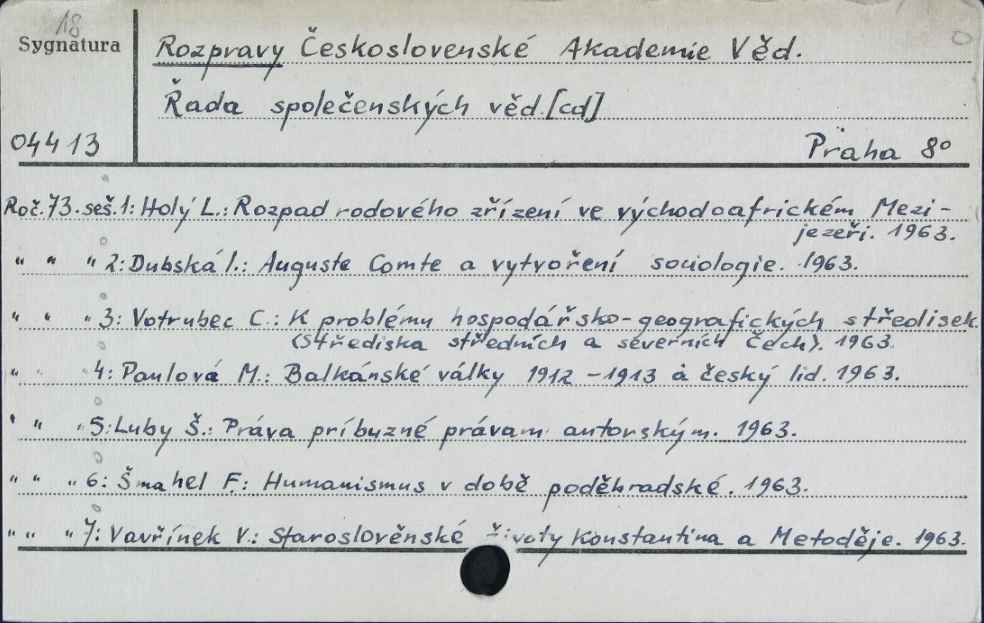 18
Sygnatura
Rozpravy Československé Akademie Věd.
Řada společenských věd. [cd]
04413
Praha 8°
Roč. 73. seš. 1: Holý L.: Rozpad rodového zřízení ve východoafrickém Mezi-
jezeři. 1963.
" " " 2: Dubská I.: Auguste Comte a vytvoření sociologie. 1963.
" " " 3: Votrubec C.: K problému hospodářsko-geografických středisek.
(Střediska středních a severních Čech). 1963.
" " " 4: Paulová M.: Balkánské války 1912-1913 a český lid. 1963.
" " " 5: Luby Š.: Práva príbuzné právam autorským. 1963.
" " " 6: Šmahel F.: Humanismus v době poděbradské. 1963.
" " " 7: Vavřínek V.: Staroslověnské životy Konstantina a Metoděje. 1963.